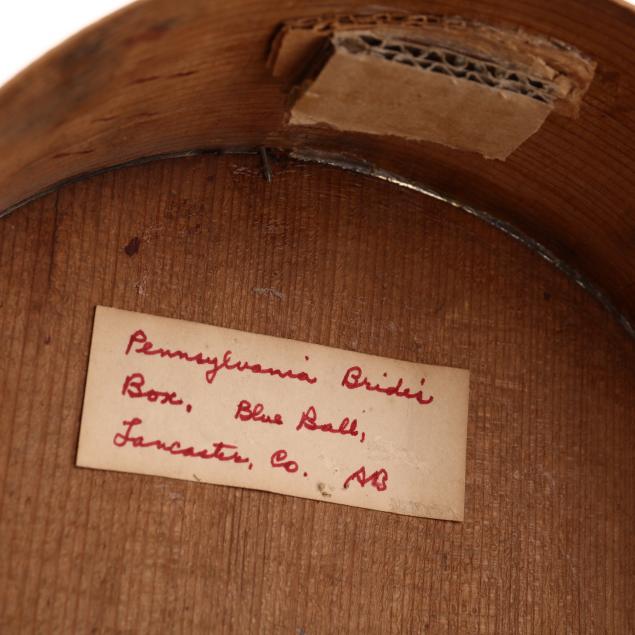 Pennsylvania Bride's
Box, Blue Ball,
Lancaster, Co. AB